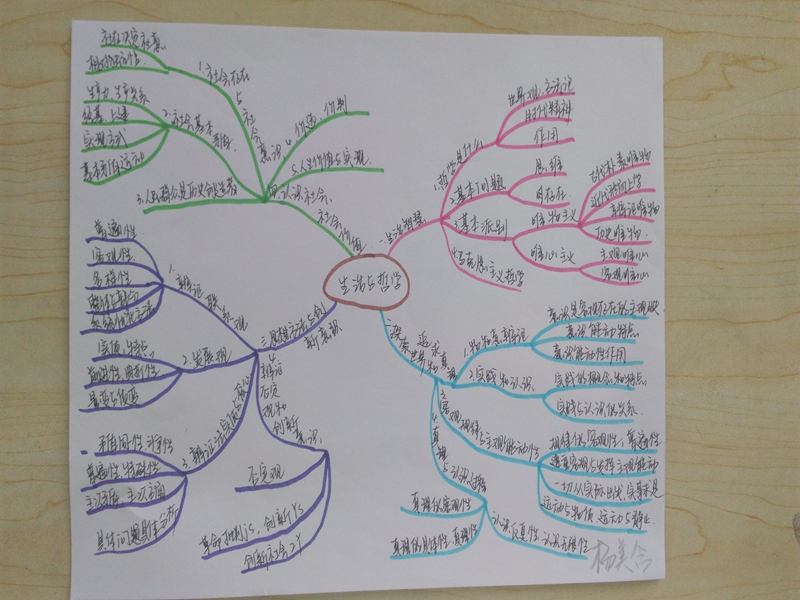 生活与哲学
一.生活智慧
1.哲学是什么
世界观、方法论
时代精神
作用
2.基本问题
思维
的存在
3.基本派别
唯物主义
古代朴素唯物
近代形而上学
辩证唯物
历史唯物
唯心主义
主观唯心
客观唯心
4.马克思主义哲学
二.探索世界与
追求真理
1.物和意辩证
意识是客观存在的主观映
意识能动特点
意识能动性作用
2.实践和认识
实践的概念和特点
实践与认识的关系
3.客观规律与主观能动性
规律的客观性,普遍性
尊重客观与发挥主观能动
一切从实际出发,实事求是
运动与物质 运动与静止
4.真理
5.认识过程
真理的客观性
真理的具体性
认识反复性,认识无限性
三.思想方法与创
新意识
1.辩证联系观
普遍性
客观性
多样性
2.发展观
前进性 曲折性
量变与质变
矛盾同一性 斗争性
普遍性 特殊性
主次矛盾 主次方面
具体问题具体分析
4.辩证否定观和创新意识
否定观
四.认识社会与
社会价值
1.社会存在与社会意识
社存决定社意
相对独立性
2.社会基本矛盾
生产力 生产关系
经基 上建
实现方式
基本矛盾运动
3.人民群众是历史创造者
4.价选、价判
5.人生价值与实现
杨美含